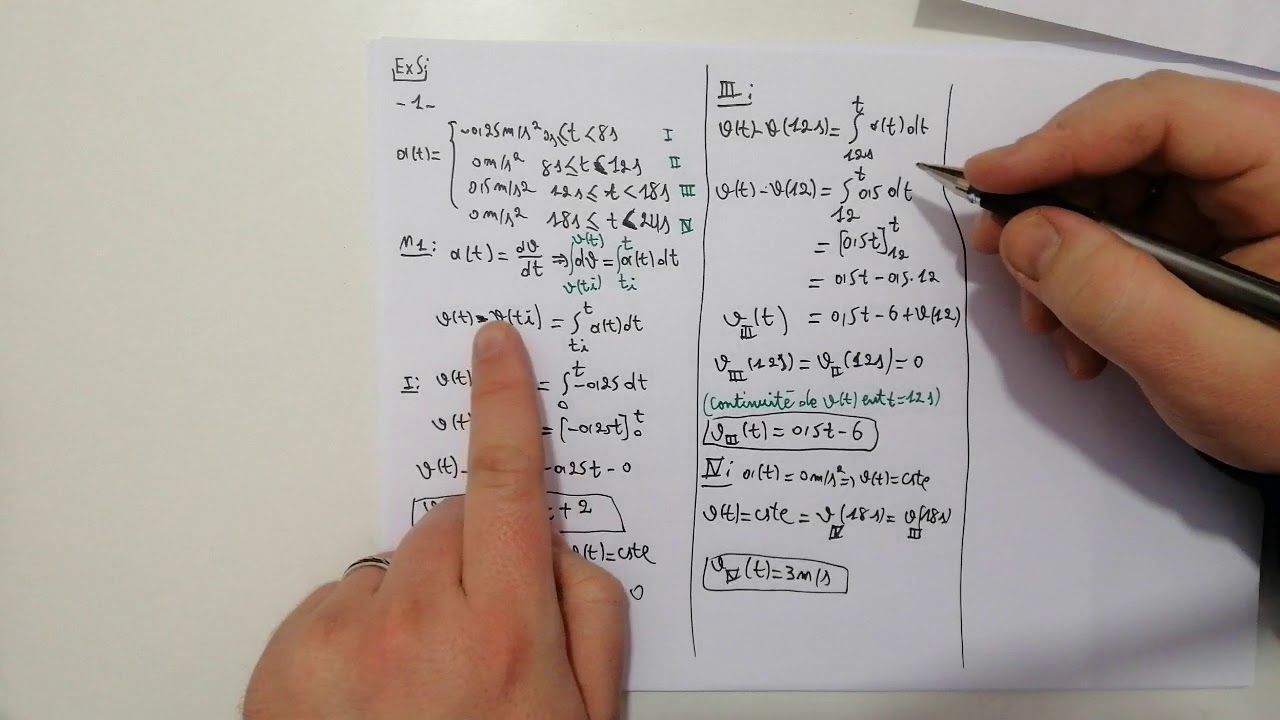 Ex5:
-1-
a(t)= { -0,25m/s² 0s≤t<8s I
0m/s² 8s≤t<12s II
0,5m/s² 12s≤t<18s III
0m/s² 18s≤t<24s IV
M1: a(t)=dv/dt ⇒∫_{v(ti)}^{v(t)}dv=∫_{ti}^{t}a(t)dt
v(t)-v(ti)=∫_{ti}^{t}a(t)dt
I: v(t) =∫_{0}^{t}-0,25dt
v(t) =[-0,25t]_{0}^{t}
v(t)- -0,25t-0
t+2
v(t)=cste
0
III:
v(t)-v(12s)=∫_{12s}^{t}a(t)dt
v(t)-v(12)=∫_{12}^{t}0,5dt
=[0,5t]_{12}^{t}
=0,5t-0,5.12
v_{III}(t) =0,5t-6+v(12)
v_{III}(12s)=v_{II}(12s)=0
(continuité de v(t) ent t=12s)
v_{III}(t)=0,5t-6
IV: a(t)=0m/s²⇒v(t)=cste
v(t)=cste=v_{IV}(18s)=v_{III}(18s)
v_{IV}(t)=3m/s